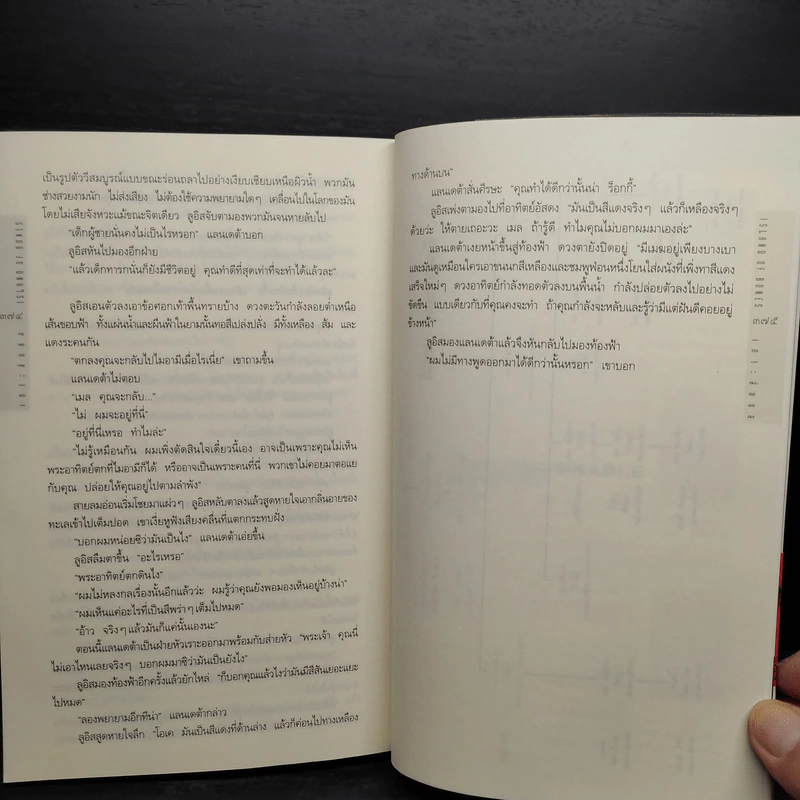 เป็นรูปตัววีสมบูรณ์แบบขณะร่อนถลาไปอย่างเงียบเชียบเหนือผิวน้ำ พวกมัน
ช่างสวยงามนัก ไม่ส่งเสียง ไม่ต้องใช้ความพยายามใดๆ เคลื่อนไปในโลกของมัน
โดยไม่เสียจังหวะแม้ขณะจิตเดียว ลูอิสจับตามองพวกมันจนหายลับไป
"เด็กผู้ชายนั่นคงไม่เป็นไรหรอก" แลนเดต้าบอก
ลูอิสหันไปมองอีกฝ่าย
"แล้วเด็กทารกนั่นก็ยังมีชีวิตอยู่ คุณทำดีที่สุดเท่าที่จะทำได้แล้วละ"
ลูอิสเอนตัวลงเอาข้อศอกเท้าพื้นทรายบ้าง ดวงตะวันกำลังลอยต่ำเหนือ
เส้นขอบฟ้า ทั้งแผ่นน้ำและผืนฟ้าในยามนั้นทอสีเปล่งปลั่ง มีทั้งเหลือง ส้ม และ
แดงระคนกัน
"ตกลงคุณจะกลับไปไมอามีเมื่อไรเนี่ย" เขาถามขึ้น
แลนเดต้าไม่ตอบ
"เมล คุณจะกลับ..."
"ไม่ ผมจะอยู่ที่นี่"
"อยู่ที่นี่เหรอ ทำไมล่ะ"
"ไม่รู้เหมือนกัน ผมเพิ่งตัดสินใจเดี๋ยวนี้เอง อาจเป็นเพราะคุณไม่เห็น
พระอาทิตย์ตกที่ไมอามีก็ได้ หรืออาจเป็นเพราะคนที่นี่ พวกเขาไม่คอยมาตอแย
กับคุณ ปล่อยให้คุณอยู่ไปตามลำพัง"
สายลมอ่อนเริ่มโชยมาแผ่วๆ ลูอิสหลับตาลงแล้วสูดหายใจเอากลิ่นอายของ
ทะเลเข้าไปเต็มปอด เขาเงี่ยหูฟังเสียงคลื่นที่แตกกระทบฝั่ง
"บอกผมหน่อยซิว่ามันเป็นไง" แลนเดต้าเอ่ยขึ้น
ลูอิสลืมตาขึ้น "อะไรเหรอ"
"พระอาทิตย์ตกดินไง"
"ผมไม่หลงกลเรื่องนั้นอีกแล้วว่ะ ผมรู้ว่าคุณยังพอมองเห็นอยู่บ้างน่า"
"ผมเห็นแค่อะไรที่เป็นสีพร่าๆ เต็มไปหมด"
"อ้าว จริงๆ แล้วมันก็แค่นั้นเองนะ"
ตอนนี้แลนเดต้าเป็นฝ่ายหัวเราะออกมาพร้อมกับส่ายหัว "พระเจ้า คุณนี่
ไม่เอาไหนเลยจริงๆ บอกผมมาซิว่ามันเป็นยังไง"
ลูอิสมองท้องฟ้าอีกครั้งแล้วยักไหล่ "ก็บอกคุณแล้วไงว่ามันมีสีสันเยอะแยะ
ไปหมด"
"ลองพยายามอีกทีน่า" แลนเดต้ากล่าว
ลูอิสสูดหายใจลึก "โอเค มันเป็นสีแดงที่ด้านล่าง แล้วก็ค่อนไปทางเหลือง
ISLAND OF BONES
๓๗๔
ทางด้านบน"
แลนเดต้าสั่นศีรษะ "คุณทำได้ดีกว่านั้นน่า ร็อกกี้"
ลูอิสเพ่งตามองไปที่อาทิตย์อัสดง "มันเป็นสีแดงจริงๆ แล้วก็เหลืองจริงๆ
ด้วยว่ะ ให้ตายเถอะวะ เมล ถ้ารู้ดี ทำไมคุณไม่บอกผมมาเองล่ะ"
แลนเดต้าเงยหน้าขึ้นสู่ท้องฟ้า ดวงตายังปิดอยู่ "มีเมฆอยู่เพียงบางเบา
และมันดูเหมือนใครเอาขนนกสีเหลืองและชมพูฟ่อนหนึ่งโยนใส่ผนังที่เพิ่งทาสีแดง
เสร็จใหม่ๆ ดวงอาทิตย์กำลังทอดตัวลงบนพื้นน้ำ กำลังปล่อยตัวลงไปอย่างไม่
ขัดขืน แบบเดียวกับที่คุณคงจะทำ ถ้าคุณกำลังจะหลับและรู้ว่ามีแต่ฝันดีคอยอยู่
ข้างหน้า"
ลูอิสมองแลนเดต้าแล้วจึงหันกลับไปมองท้องฟ้า
"ผมไม่มีทางพูดออกมาได้ดีกว่านั้นหรอก" เขาบอก
ISLAND OF BONES
๓๗๕